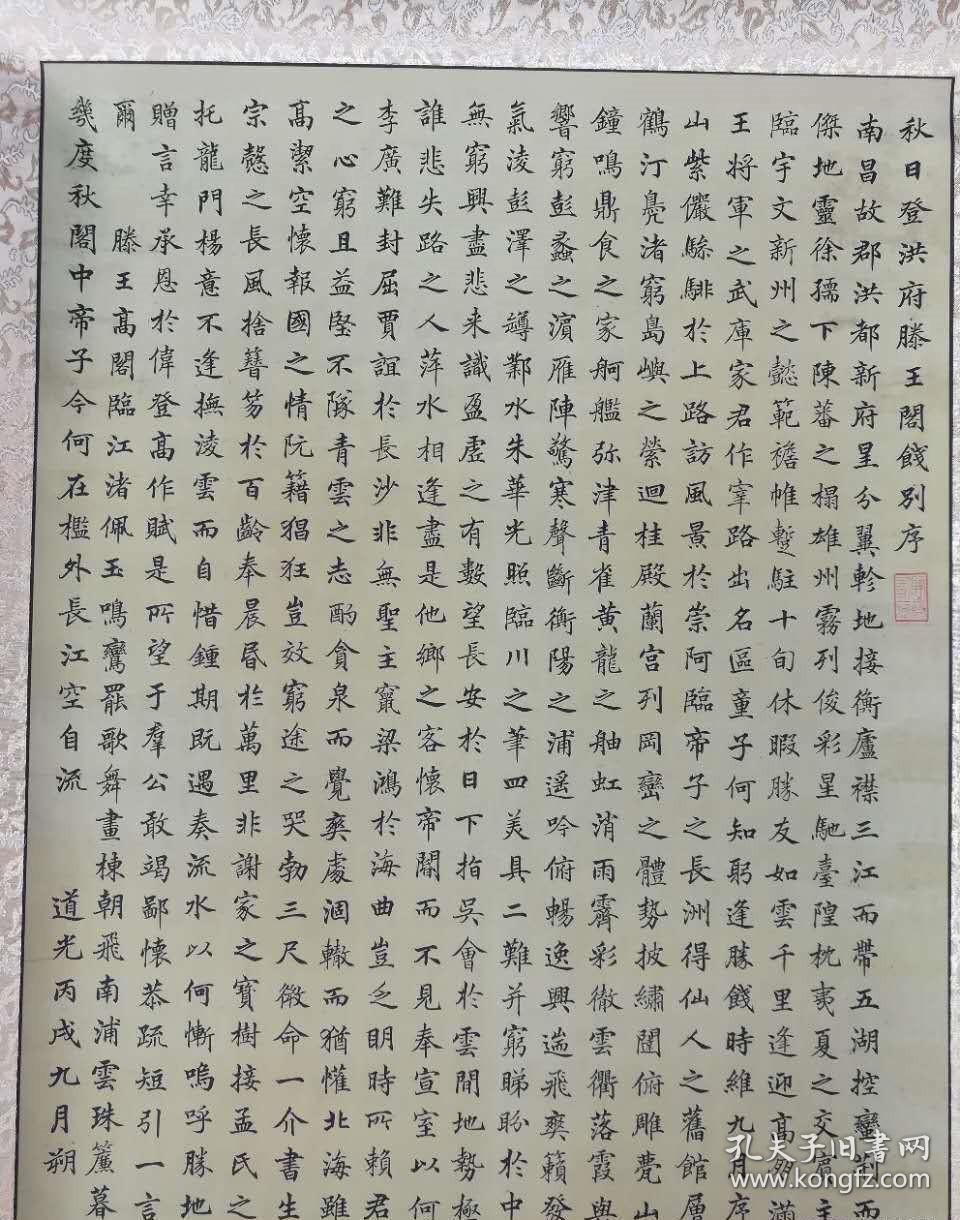 秋日登洪府滕王閣餞別序
南昌故郡洪都新府星分翼軫地接衡廬襟三江而帶五湖控蠻荊而
傑地靈徐孺下陳蕃之榻雄州霧列俊彩星馳臺隍枕夷夏之交賓主
臨宇文新州之懿範襜帷暫駐十旬休暇勝友如雲千里逢迎高朋滿
王將軍之武庫家君作宰路出名區童子何知躬逢勝餞時維九月序
山紫儼驂騑於上路訪風景於崇阿臨帝子之長洲得仙人之舊館層
鶴汀鳧渚窮島嶼之縈迴桂殿蘭宮列岡巒之體勢披繡闥俯雕甍山
鐘鳴鼎食之家舸艦弥津青雀黃龍之舳虹消雨霽彩徹雲衢落霞與
響窮彭蠡之濱雁陣驚寒聲斷衡陽之浦遙吟俯暢逸興遄飛爽籟發
氣淩彭澤之罇鄴水朱華光照臨川之筆四美具二難并窮睇盼於中
無窮興盡悲来識盈虛之有數望長安於日下指吳會於雲間地勢極
誰悲失路之人萍水相逢盡是他鄉之客懷帝閽而不見奉宣室以何
李廣難封屈賈誼於長沙非無聖主竄梁鴻於海曲豈乏明時所賴君
之心窮且益堅不隊青雲之志酌貪泉而覺爽處涸轍而猶懽北海雖
高潔空懷報國之情阮籍猖狂豈效窮途之哭勃三尺微命一介書生
宗愨之長風捨簪笏於百齡奉晨昏於萬里非謝家之寶樹接孟氏之
托龍門楊意不逢撫淩雲而自惜鍾期既遇奏流水以何慚嗚呼勝地
贈言幸承恩於偉登高作賦是所望于羣公敢竭鄙懷恭疏短引一言
爾 滕王高閣臨江渚佩玉鳴鸞罷歌舞畫棟朝飛南浦雲珠簾暮
幾度秋閣中帝子今何在檻外長江空自流
道光丙戌九月朔
孔夫子旧书网
www.kongfz.com